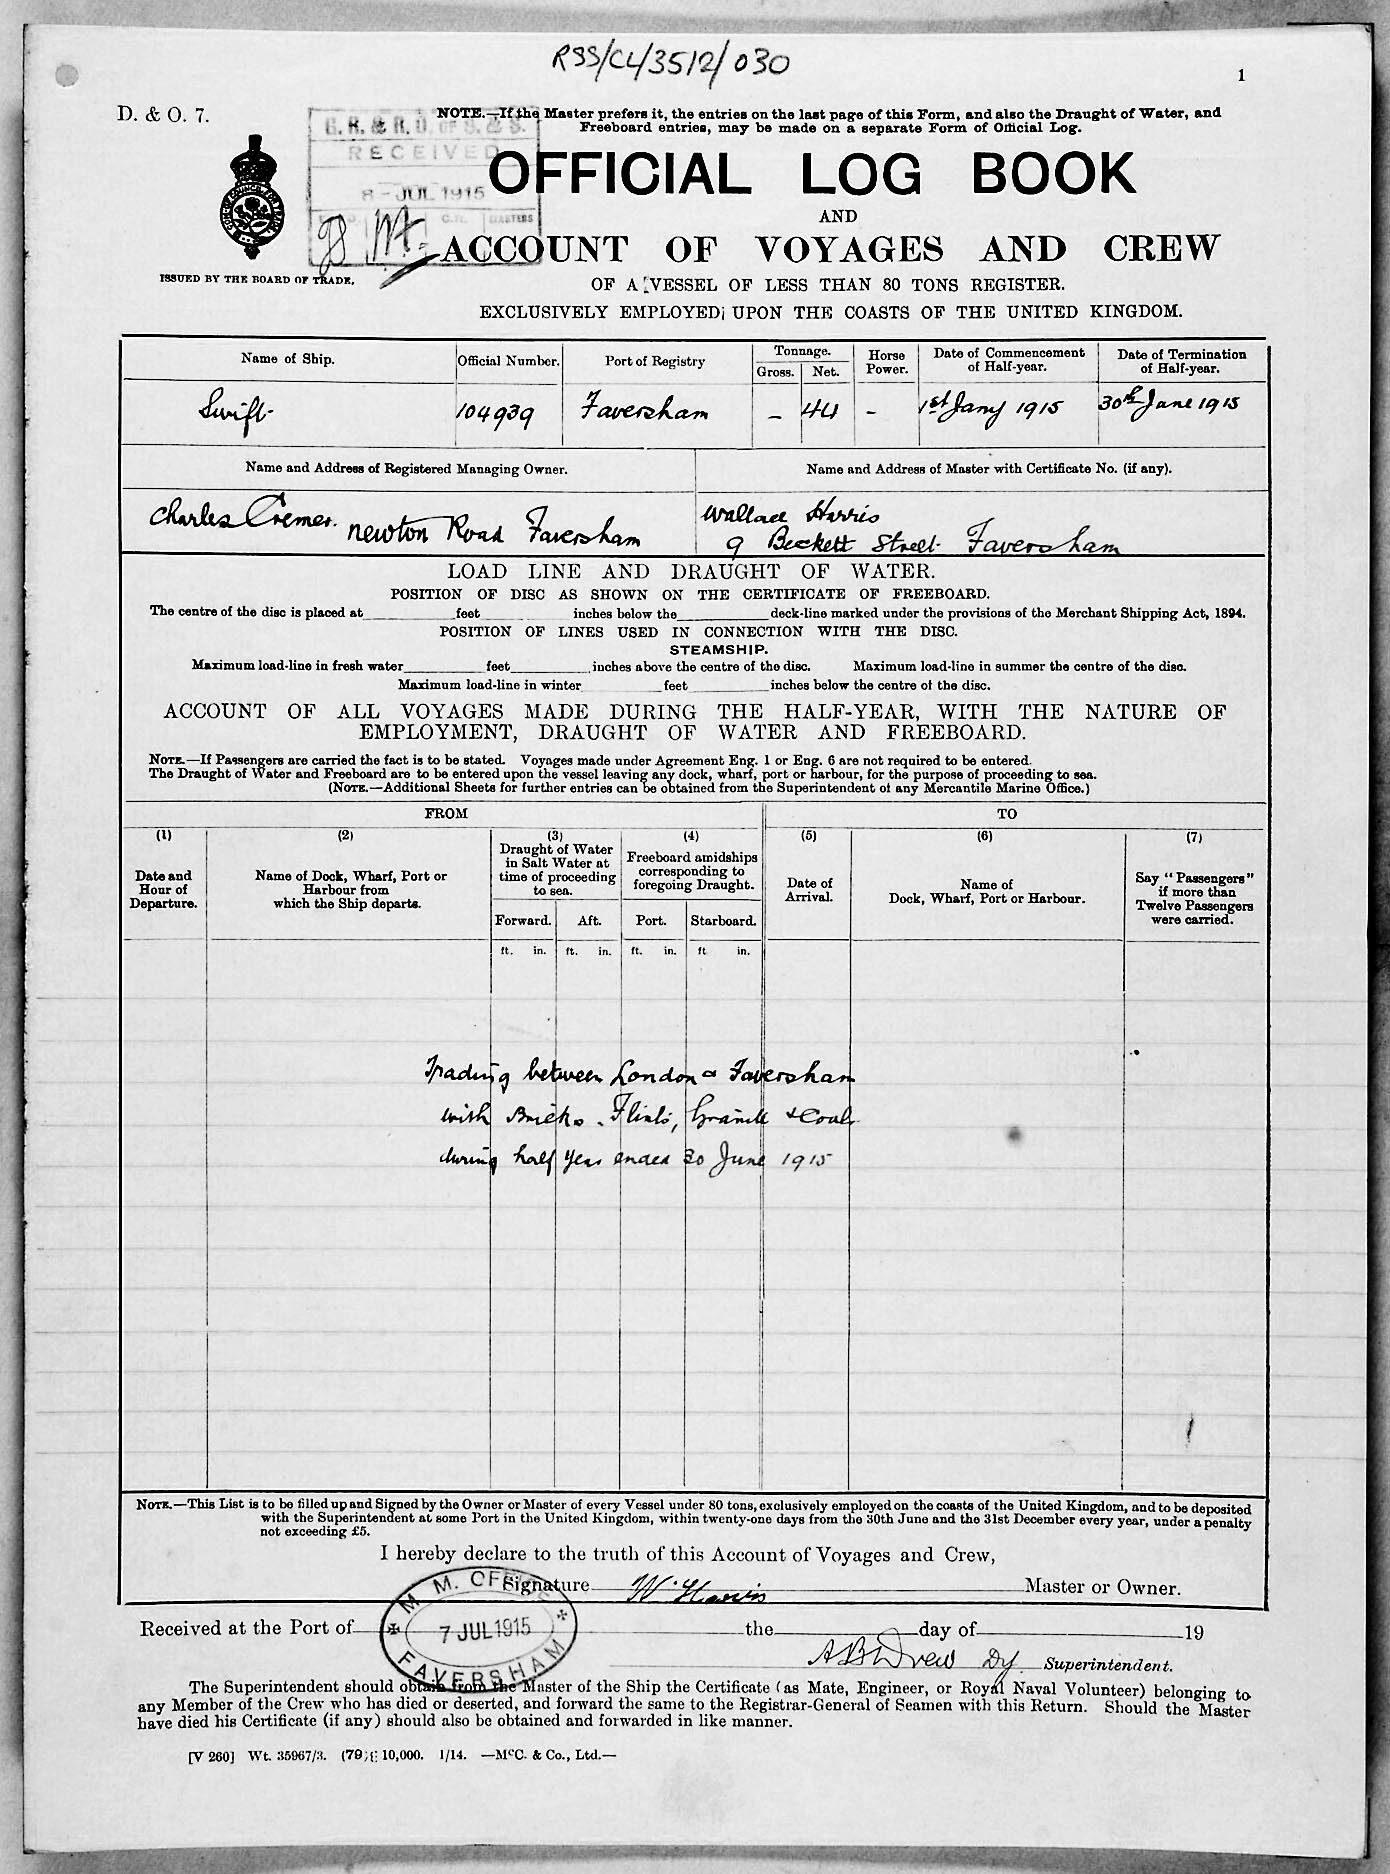 RSS/CL/3512/030
1
D. & O. 7.
NOTE.—If the Master prefers it, the entries on the last page of this Form, and also the Draught of Water, and
Freeboard entries, may be made on a separate Form of Official Log.
RECEIVED
8 - JUL 1915
MASTERS
OFFICIAL LOG BOOK
AND
ACCOUNT OF VOYAGES AND CREW
ISSUED BY THE BOARD OF TRADE.
OF A VESSEL OF LESS THAN 80 TONS REGISTER.
EXCLUSIVELY EMPLOYED UPON THE COASTS OF THE UNITED KINGDOM.
Name of Ship. Official Number. Port of Registry Tonnage. Gross. Net. Horse Power. Date of Commencement of Half-year. Date of Termination of Half-year.
Swift 104939 Faversham – 44 – 1st Jany 1915 30th June 1915
Name and Address of Registered Managing Owner. Name and Address of Master with Certificate No. (if any).
Charles Cremer. Newton Road Faversham
Wallace Harris
9 Beckett Street Faversham
LOAD LINE AND DRAUGHT OF WATER.
POSITION OF DISC AS SHOWN ON THE CERTIFICATE OF FREEBOARD.
The centre of the disc is placed at feet inches below the deck-line marked under the provisions of the Merchant Shipping Act, 1894.
POSITION OF LINES USED IN CONNECTION WITH THE DISC.
STEAMSHIP.
Maximum load-line in fresh water feet inches above the centre of the disc. Maximum load-line in summer the centre of the disc.
Maximum load-line in winter feet inches below the centre of the disc.
ACCOUNT OF ALL VOYAGES MADE DURING THE HALF-YEAR, WITH THE NATURE OF
EMPLOYMENT, DRAUGHT OF WATER AND FREEBOARD.
NOTE.—If Passengers are carried the fact is to be stated. Voyages made under Agreement Eng. 1 or Eng. 6 are not required to be entered.
The Draught of Water and Freeboard are to be entered upon the vessel leaving any dock, wharf, port or harbour, for the purpose of proceeding to sea.
(NOTE.—Additional Sheets for further entries can be obtained from the Superintendent of any Mercantile Marine Office.)
FROM TO
(1) (2) (3) (4) (5) (6) (7)
Date and Hour of Departure.
Name of Dock, Wharf, Port or Harbour from which the Ship departs.
Draught of Water in Salt Water at time of proceeding to sea.
Freeboard amidships corresponding to foregoing Draught.
Date of Arrival.
Name of Dock, Wharf, Port or Harbour.
Say "Passengers" if more than Twelve Passengers were carried.
Forward. Aft. Port. Starboard.
ft. in. ft. in. ft. in. ft in.
Trading between London & Faversham
with Bricks, Flints, Granite & Coal
during half year ended 30 June 1915
NOTE.—This List is to be filled up and Signed by the Owner or Master of every Vessel under 80 tons, exclusively employed on the coasts of the United Kingdom, and to be deposited
with the Superintendent at some Port in the United Kingdom, within twenty-one days from the 30th June and the 31st December every year, under a penalty
not exceeding £5.
I hereby declare to the truth of this Account of Voyages and Crew,
Signature W. Harris Master or Owner.
M. M. OFFICE
7 JUL 1915
FAVERSHAM
Received at the Port of the day of 19
A B Drew Dy. Superintendent.
The Superintendent should obtain from the Master of the Ship the Certificate (as Mate, Engineer, or Royal Naval Volunteer) belonging to
any Member of the Crew who has died or deserted, and forward the same to the Registrar-General of Seamen with this Return. Should the Master
have died his Certificate (if any) should also be obtained and forwarded in like manner.
[V 260] Wt. 35967/3. (79) 10,000. 1/14. —McC. & Co., Ltd.—